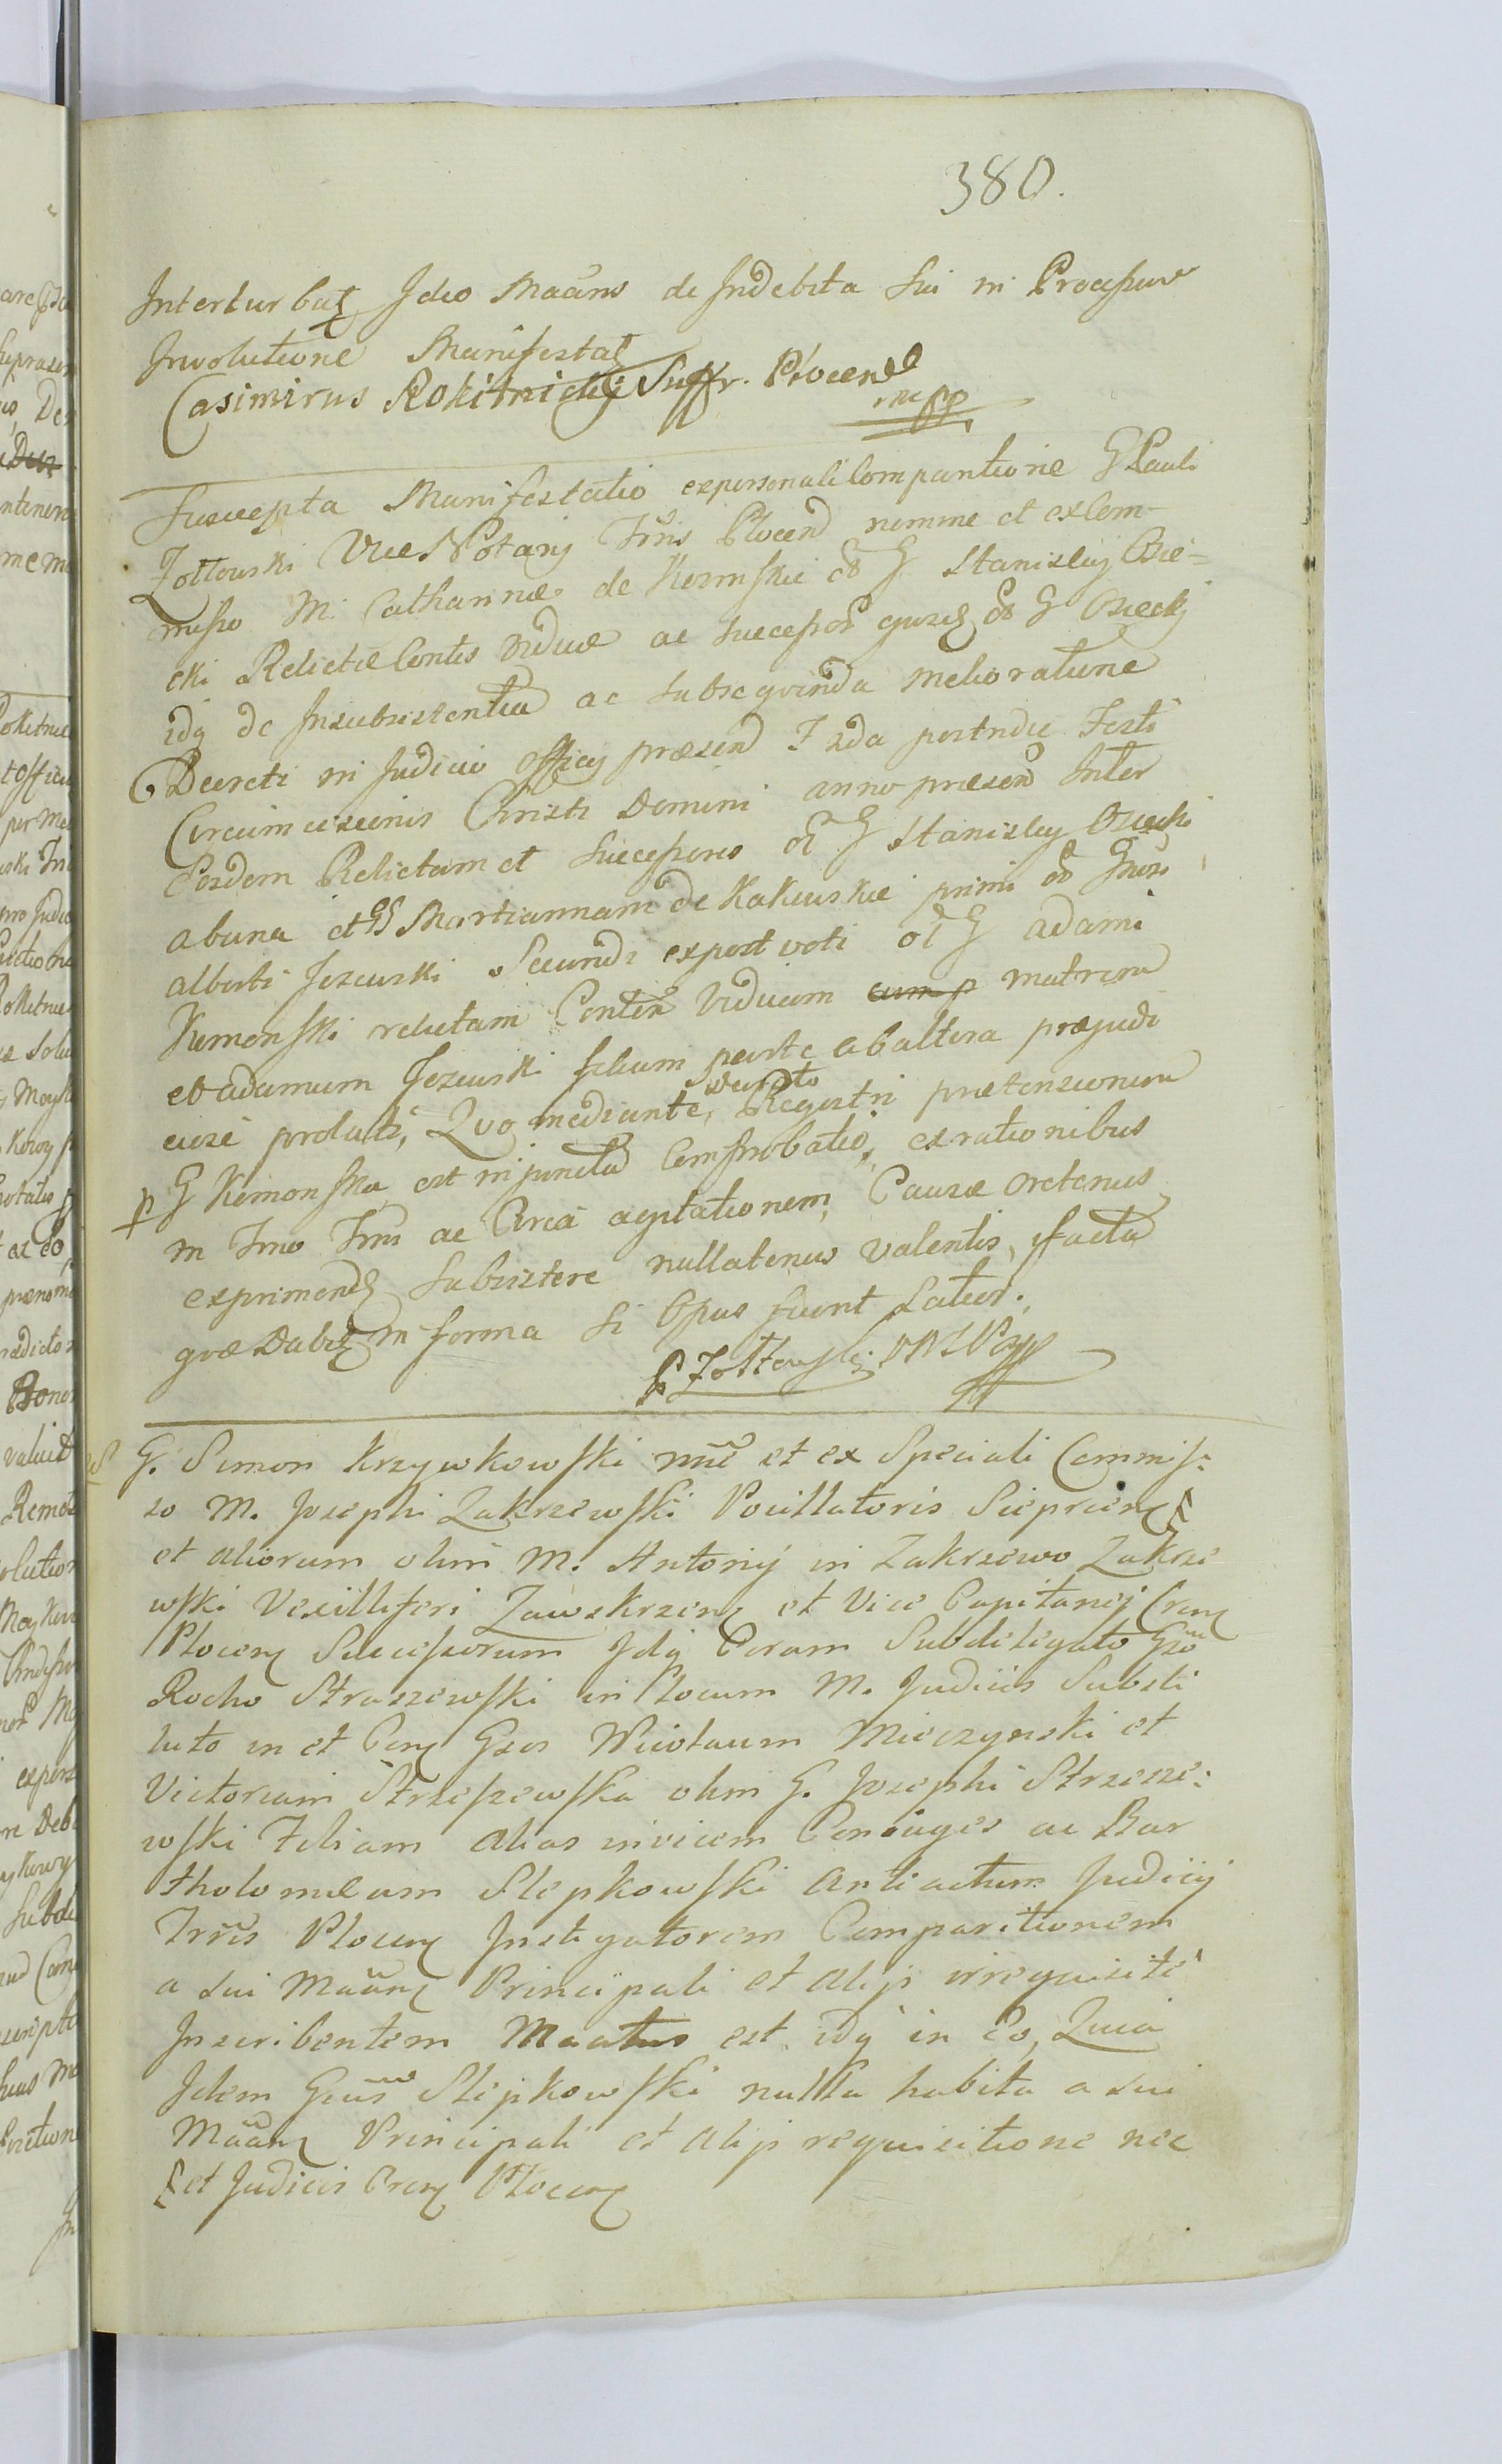 380.
Interturbat Ideo Maans de Indebita sui in Processum
Involutione Manifestat
Casimirus Rokitnicki Suffr. Plocen
mpp
Suscepta Manifestatio ex personali Comparitione G Pauli
Zołtowski Vice Notarij Trris Plocen nomine et ex Com-
misso M. Catharinæ de Kozmskie ol G Stanislaij Osie-
cki Relictæ Contis Viduæ ac Successor ejusd ol G Osiecki
idq de Insubsistentia ac subsequenda melioratione
Decreti in Judicio Officij præsen Frida postridie Festi
Circumcisionis Christi Domini anno præsen Inter
Eosdem Relictam et Successores ol G Stanislaij Osiecki
ab una et G Martiannam de Kakowskie primi ol Gnosi
Alberti Jezewski Secundi ex post voti ol G Adami
Kemonski relictam Conten Viduam cum p matrem
et Adamum Jezewski filium parte ab altera præjudi
ciose prolati, Quo mediante, Decreto Regestri prætensionum
p G Kemonska est injuncta Comprobatio, ex rationibus
in Tmo Trm ac Circa agitationem Causæ oretenus
exprimend Subsistere nullatenus valentis, facta
quæ Dabit in forma si Opus fuerit Latiori.
P Zołtowski VNTP mpp
G. Simon Krzywkowski nne et ex Speciali Commis:
so M. Josephi Zakrzewski Pocillatoris Sieprcen
et aliorum olim M. Antonij in Zakrzewo Zakrze
wski Vexilliferi Zawskrzen et Vice Capitanei Cren
Plocen Successorum Idq Coram Subdelegato Gso
Rocho Straszewski in Locum M. Judicis Substi
tuto in et Con Gsos Nicolaum Mieczynski et
Victoriam Strzeszewska olim G. Josephi Strzesze:
wski Filiam alias invicem Conjuges ac Bar
tholomeum Slepkowski Antiactum Judicij
Trris Plocen Instigatorem Comparitionem
a sui Maan Principali et alijs irrequisite
Inscribentem Maatus est idq in Eo, Quia
Idem Gnus Slepkowski nulla habita a sui
Maan Principali et alijs requisitione nec
et Judicis Cren Plocen